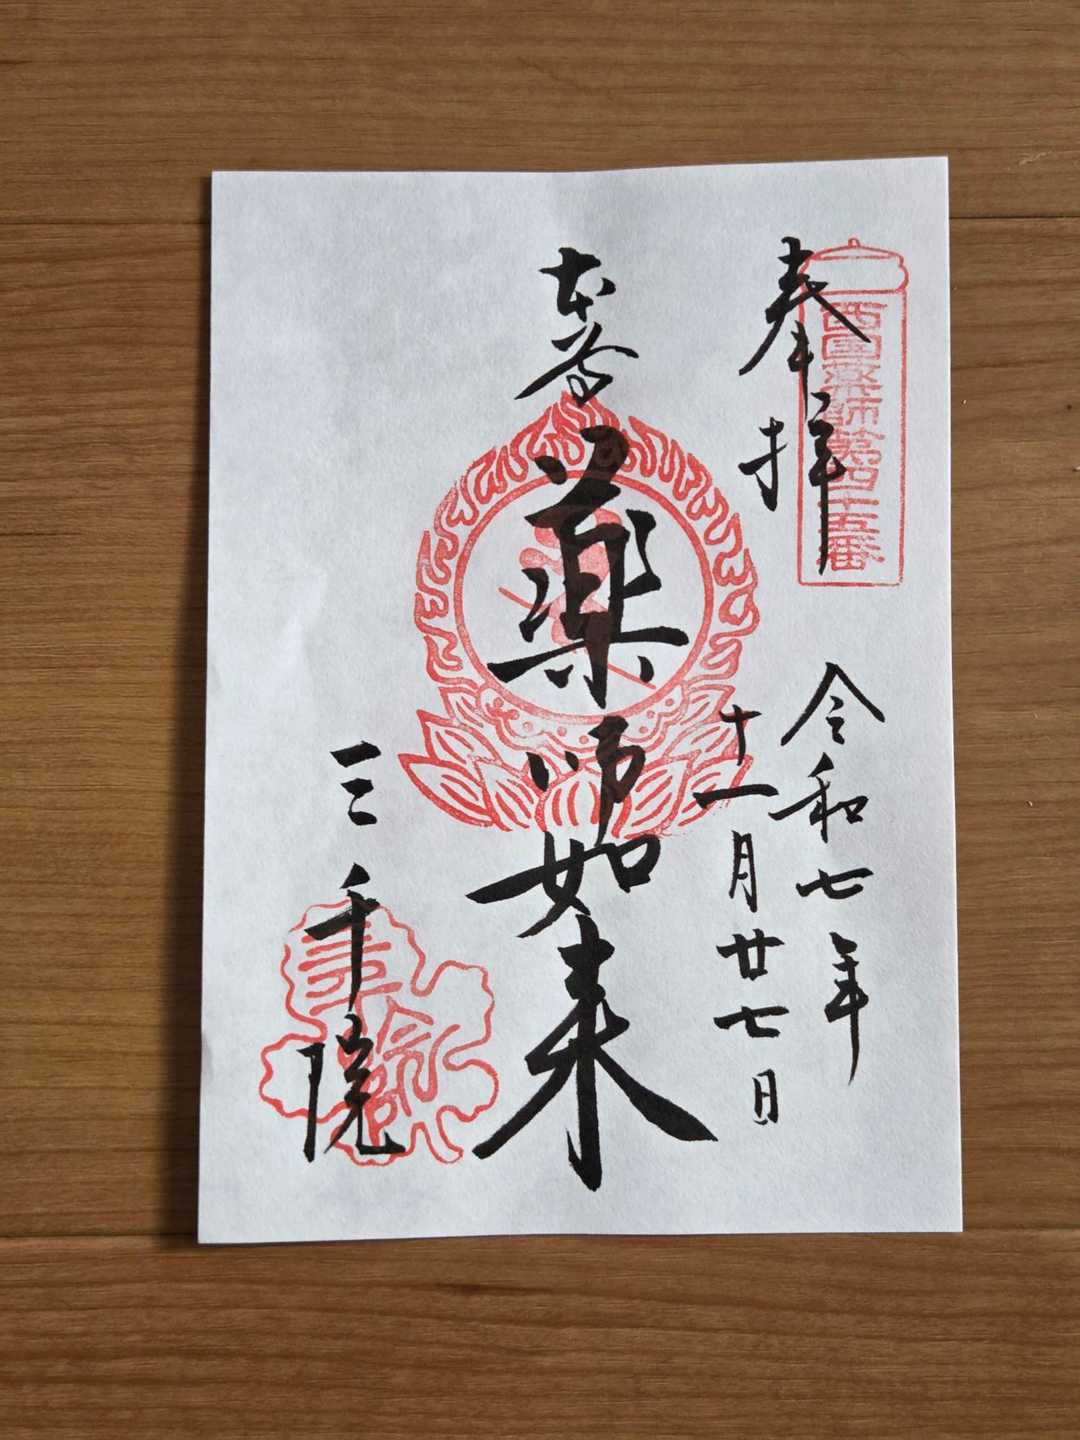 奉拝
西国薬師第四十五番
令和七年
十一月廿七日
本尊
薬師如来
三千院